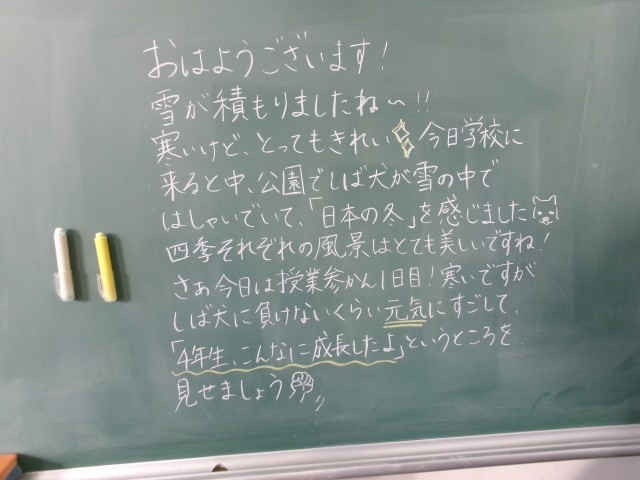 おはようございます!
雪が積もりましたね〜!!
寒いけど、とってもきれい 今日学校に
来ると中、公園でしば犬が雪の中で
はしゃいでいて、「日本の冬」を感じました
四季それぞれの風景はとても美しいですね!
さぁ今日は授業参かん1日目!寒いですが
しば犬に負けないくらい元気にすごして、
「4年生、こんなに成長したよ」というところを
見せましょう